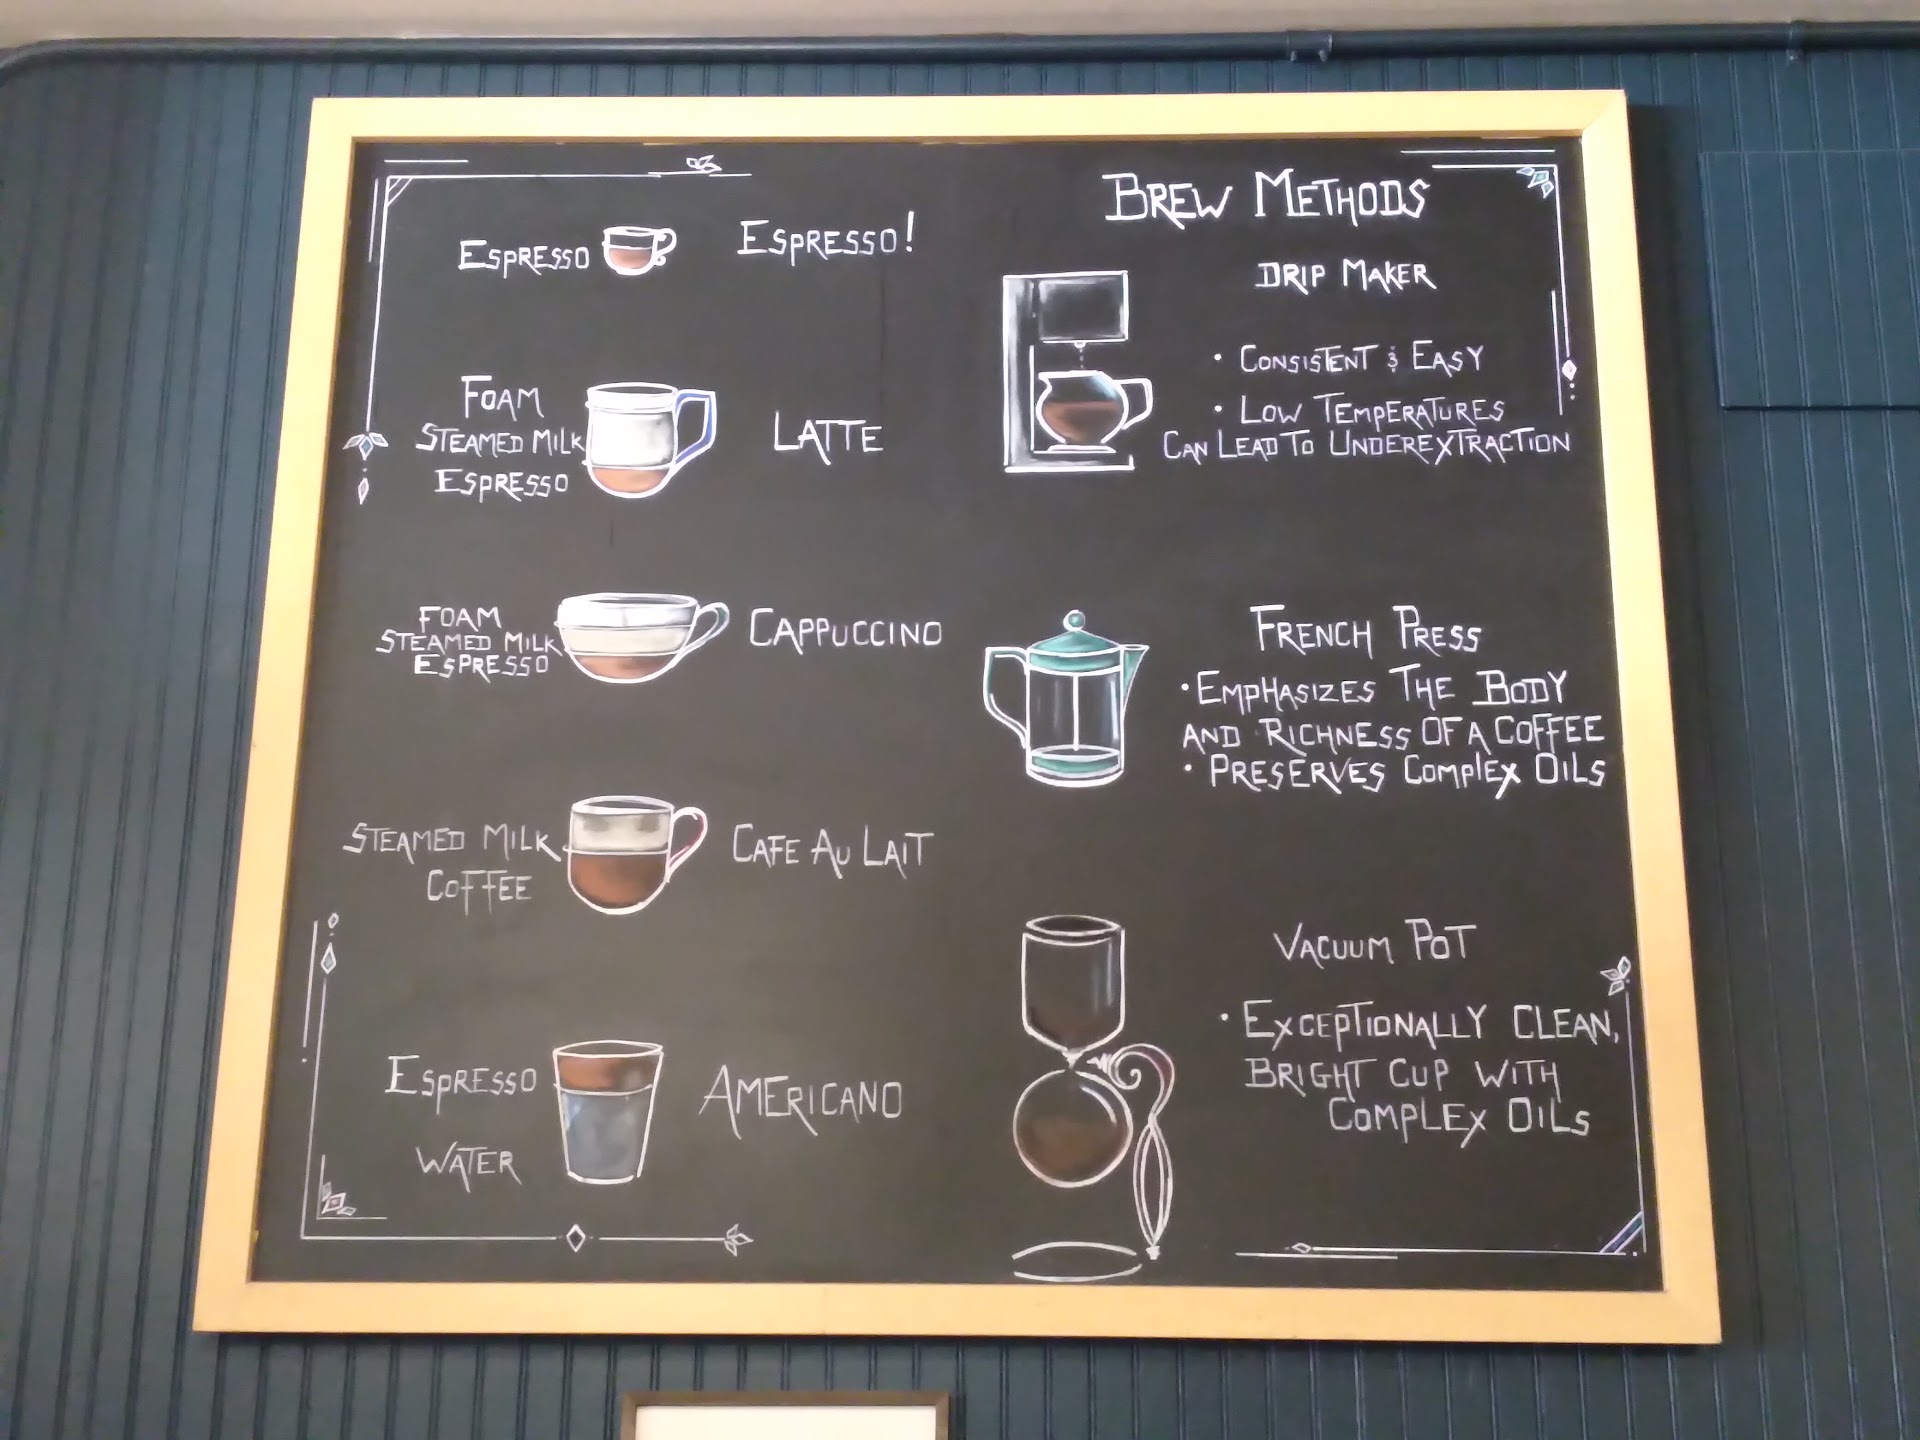 Espresso
Espresso!
Foam
Steamed Milk
Espresso
Latte
Foam
Steamed Milk
Espresso
Cappuccino
Steamed Milk
Coffee
Cafe Au Lait
Espresso
Water
Americano
Brew Methods
Drip Maker
• Consistent & Easy
• Low Temperatures
Can Lead To Underextraction
French Press
• Emphasizes The Body
and Richness of a Coffee
• Preserves Complex Oils
Vacuum Pot
• Exceptionally Clean,
Bright Cup with
Complex Oils